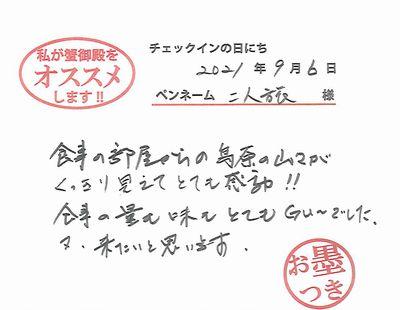 私が蟹御殿を
オススメ
します!!
チェックインの日にち
2021年9月6日
ペンネーム 二人旅 様
食事の部屋からの島原の山々が
くっきり見えてとても感動!!
食事の量も味もとてもGu〜でした。
又、来たいと思います。
お墨
つき